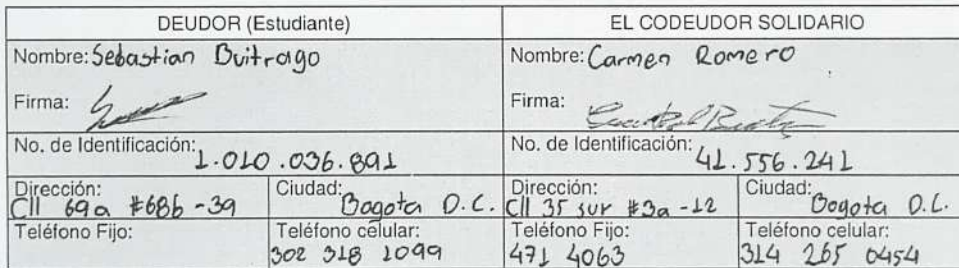 DEUDOR (Estudiante)
EL CODEUDOR SOLIDARIO
Nombre: Sebastian Buitrago
Nombre: Carmen Romero
Firma:
Firma:
No. de Identificación: 1.010.036.891
No. de Identificación: 41.556.241
Dirección:
Cll 69a #68b -39
Ciudad:
Bogota D.C.
Dirección:
Cll 35 sur #3a -12
Ciudad:
Bogota D.C.
Teléfono Fijo:
Teléfono celular:
302 318 1099
Teléfono Fijo:
471 4063
Teléfono celular:
314 265 0454